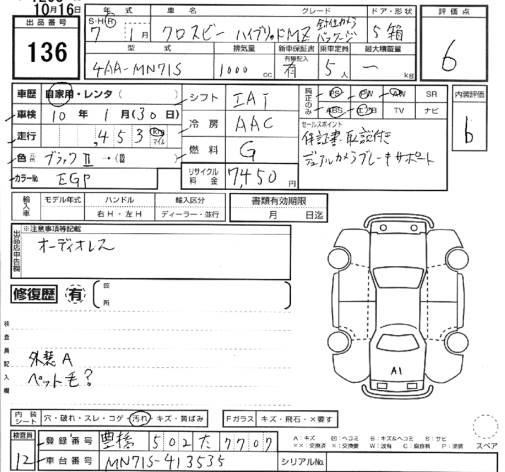 10月16日
出品番号
136
年式 車名 グレード ドア・形状 評価点
S・H・R 7年 1月 クロスビー ハイブリッドMZ 全方位カメラパッケージ 5 箱 6
型式 排気量 新車保証書 乗車定員 最大積載量
有無記入
4AA-MN71S 1000cc 有 5人 ー kg
車歴 自家用・レンタ( )
車検 10年 1月(30日)
走行 ,453 Km マイル
色 ブラックⅡ→(Ⅲ
カラーNo. EGP
シフト IAT
冷房 AAC
燃料 G
リサイクル料金 7,450円
純正のみ PS PW AW SR
ABS エアB TV ナビ
内装評価
b
セールスポイント
保証書、取説付き
デュアルカメラブレーキサポート
輸入車 モデル年式 ハンドル 輸入区分
右H・左H ディーラー・並行
書類有効期限
月 日迄
出品店申告欄
※注意事項等記載
オーディオレス
修復歴 有
箇所
検査員記入欄
外装A
ペット毛?
A1
内装シート 穴・破れ・スレ・コゲ・汚れ・キズ・黄ばみ
Fガラス キズ・飛石・×要す
検査員
12
登録番号 豊橋 502 た 7707
車台番号 MN71S-413535
A:キズ U:凹ヘコミ B:キズ&ヘコミ S:サビ
××:交換済 ×:交換 W:波有 C:腐食 P:塗装
スペア
シリアルNo.